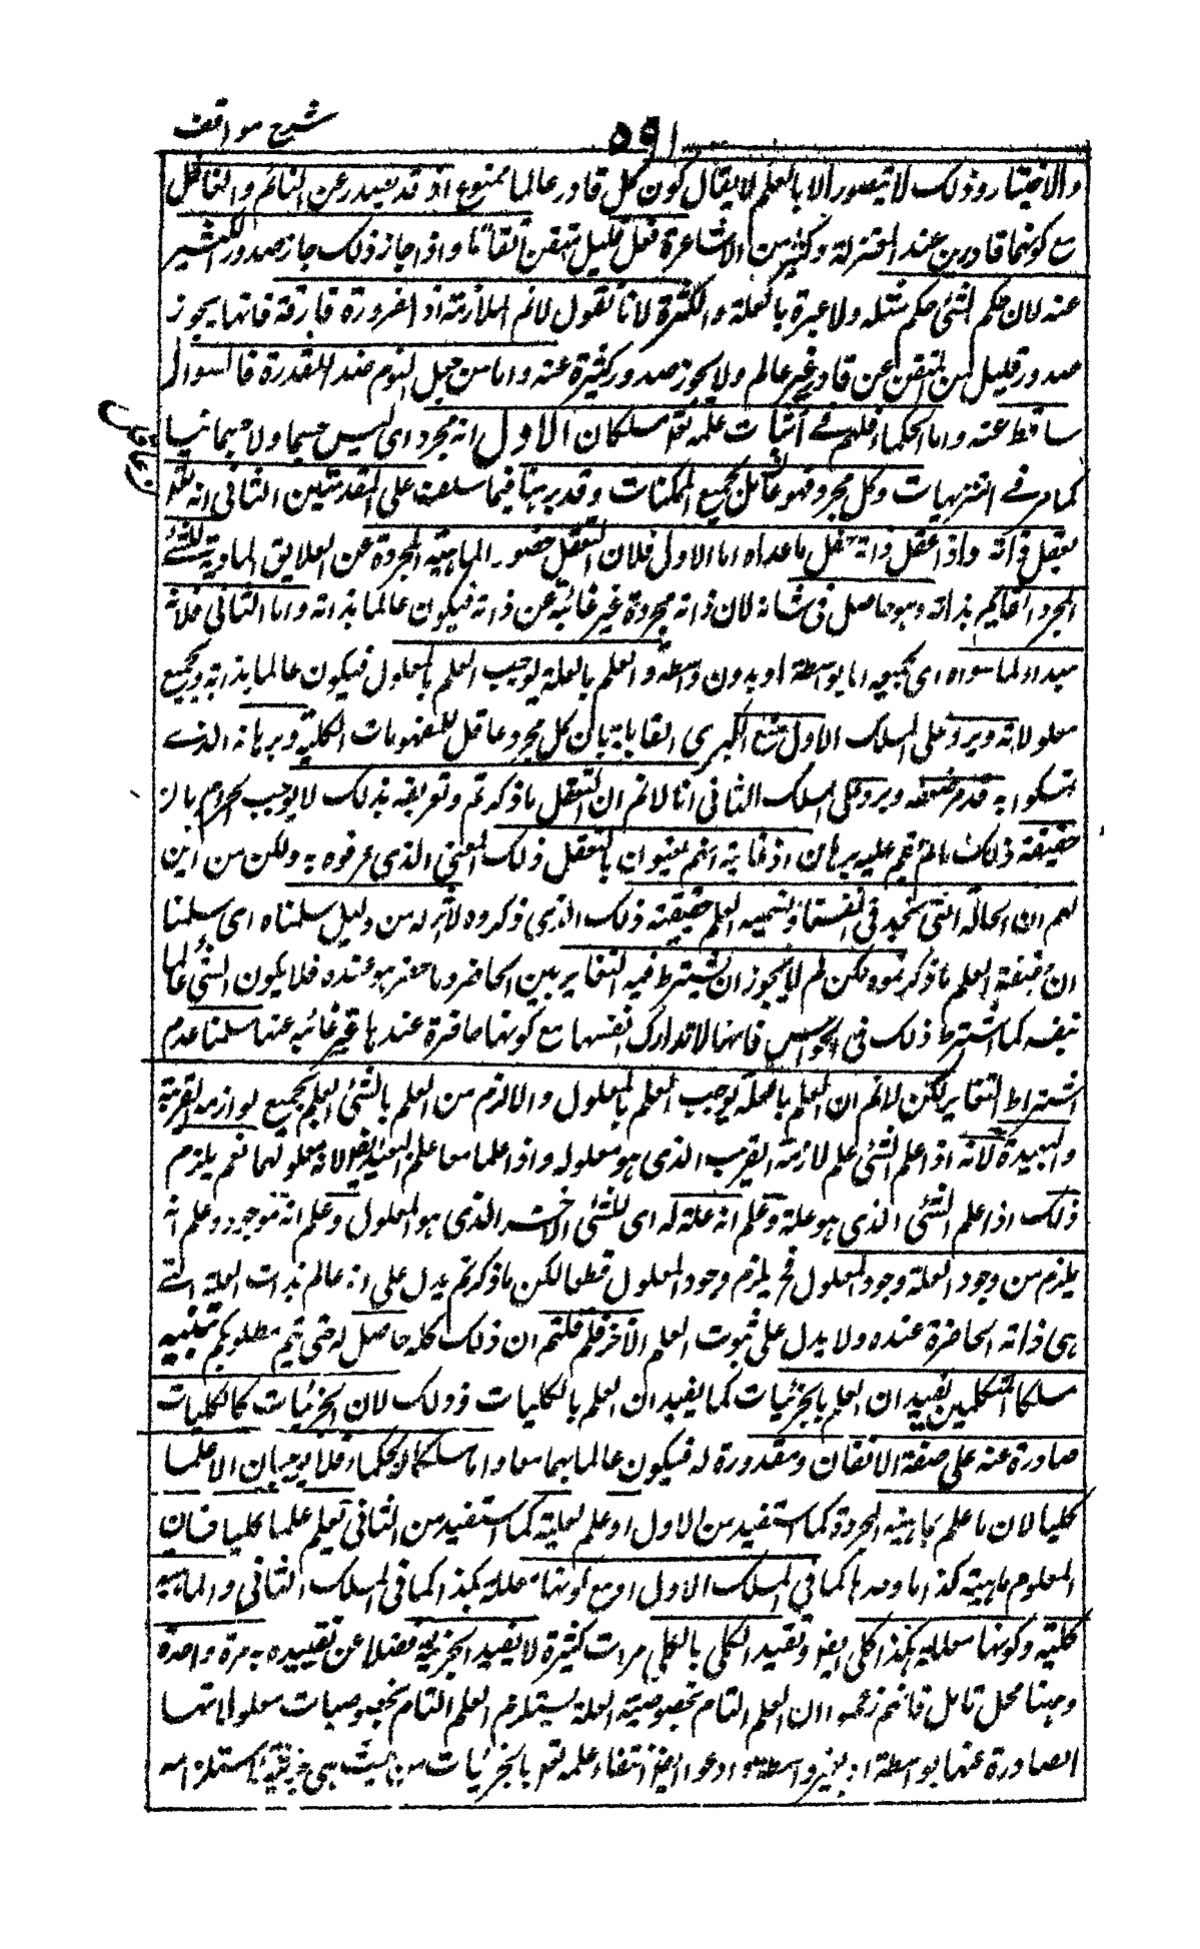 شرح مواقف
٥٩١
والاختيار وذلك لا يتصور الا بالعلم لا يقال كون كل قادر عالما ممنوع اذ قد يصدر عن النائم والغافل
مع كونهما قادرين عند المعتزلة وكثير من الاشاعرة فعل قليل متقن اتفاقا واذا جاز ذلك جاز صدور الكثير
عنه لان حكم الشئ حكم مثله ولا عبرة بالقلة والكثرة لانا نقول لانم الملازمة اذ الضرورة فارقة فانها يجوز
صدور قليل من المتقن عن قادر غير عالم ولا يجوز صدور كثيرة عنه واما من جعل النوم ضد القدرة فالسوال
ساقط عنه واما الحكماء فلهم فى اثبات علمه تعم مسلكان الاول انه مجرد اى ليس جسما ولا جسمانيا
كما مر فى التنزيهات وكل مجرد فهو عاقل بجميع الممكنات وقد برهنا فيما سلف على المقدمتين الثانى انه تعم
يعقل ذاته واذا عقل ذاته عقل ما عداه اما الاول فلان التعقل حضور الماهية المجردة عن العلايق المادية للشئ
المجرد القايم بذاته وهو حاصل فى شانه لان ذاته مجردة غير غائبة عن ذاته فيكون عالما بذاته واما الثانى فلانه
مبدء لما سواه اى جميعه اما بواسطة او بدون واسطة والعلم بالعلة يوجب العلم بالمعلول فيكون عالما بذاته وبجميع
معلولاته ويرد على المسلك الاول منع الكبرى القائلة بان كل مجرد عاقل للمفهومات الكلية وبرهانه الذے
تمسكوا به قد مر ضعفه ويرد على المسلك الثانى انا لانم ان التعقل ما ذكرتم وتعريفه بذلك لا يوجب الجزم بان
حقيقته ذلك ما لم يقم عليه برهان اذ غايته انهم يعنون بالتعقل ذلك المعنى الذى عرفوه به ولكن من اين
لهم ان الحالة التى نجد فى انفسنا ونسميه العلم حقيقته ذلك الذى ذكروه لابد له من دليل سلمناه اى سلمنا
ان حقيقة العلم ما ذكرتموه لكن لم لا يجوز ان يشترط فيه التغاير بين الحاضر وما حضر هو عنده فلا يكون الشئ عالما
بنفسه كما اشترط ذلك فى الحواس فانها لا تدرك انفسها مع كونها حاضرة عندها غير غائبة عنها سلمنا عدم
اشتراط التغاير لكن لانم ان العلم بالعلة يوجب العلم بالمعلول والا لزم من العلم بالشئ العلم بجميع لوازمه القريبة
والبعيدة لانه اذا علم الشئ علم لازمه القريب الذى هو معلوله واذا علما معا علم البعيد ايضا لانه معلولهما نعم يلزم
ذلك اذا علم الشئ الذى هو علة وعلم انه علة له اى للشئ الاخر الذى هو المعلول وعلم انه موجود وعلم انه
يلزم من وجود العلة وجود المعلول فح يلزم وجود المعلول قطعا لكن ما ذكرتم يدل على انه عالم بذات العلة التے
هى ذاته الحاضرة عنده ولا يدل على ثبوت العلم الآخر فلم قلتم ان ذلك كله حاصل له حتى يتم مطلوبكم تنبيه
مسلكا المتكلمين يفيدان العلم بالجزئيات كما يفيدان العلم بالكليات وذلك لان الجزئيات كالكليات
صادرة عنه على صفة الاتقان ومقدورة له فيكون عالما بهما معا واما مسلكا الحكماء فلا يوجبان الا علما
كليا لان ما علم بماهيته المجردة كما استفيد من الاول او علم بعلية كما استفيد من الثانى يعلم علما كليا فان
المعلوم ماهيته كذا اما وحدها كما فى المسلك الاول او مع كونها معللة بكذا كما فى المسلك الثانى والماهية
كلية وكونها معللة بكذا كلى ايضا وتقييد الكلى بالكلى مرات كثيرة لا يفيد الجزئية فضلا عن تقييده به مرة واحدة
وهنا محل تامل فانهم زعموا ان العلم التام بخصوصية العلة يستلزم العلم التام بخصوصيات معلولاتها
الصادرة عنها بواسطة او بغير واسطة وادعوا ايضا انتفاء علمه تعم بالجزئيات من حيث هى جزئية لاستلزامه